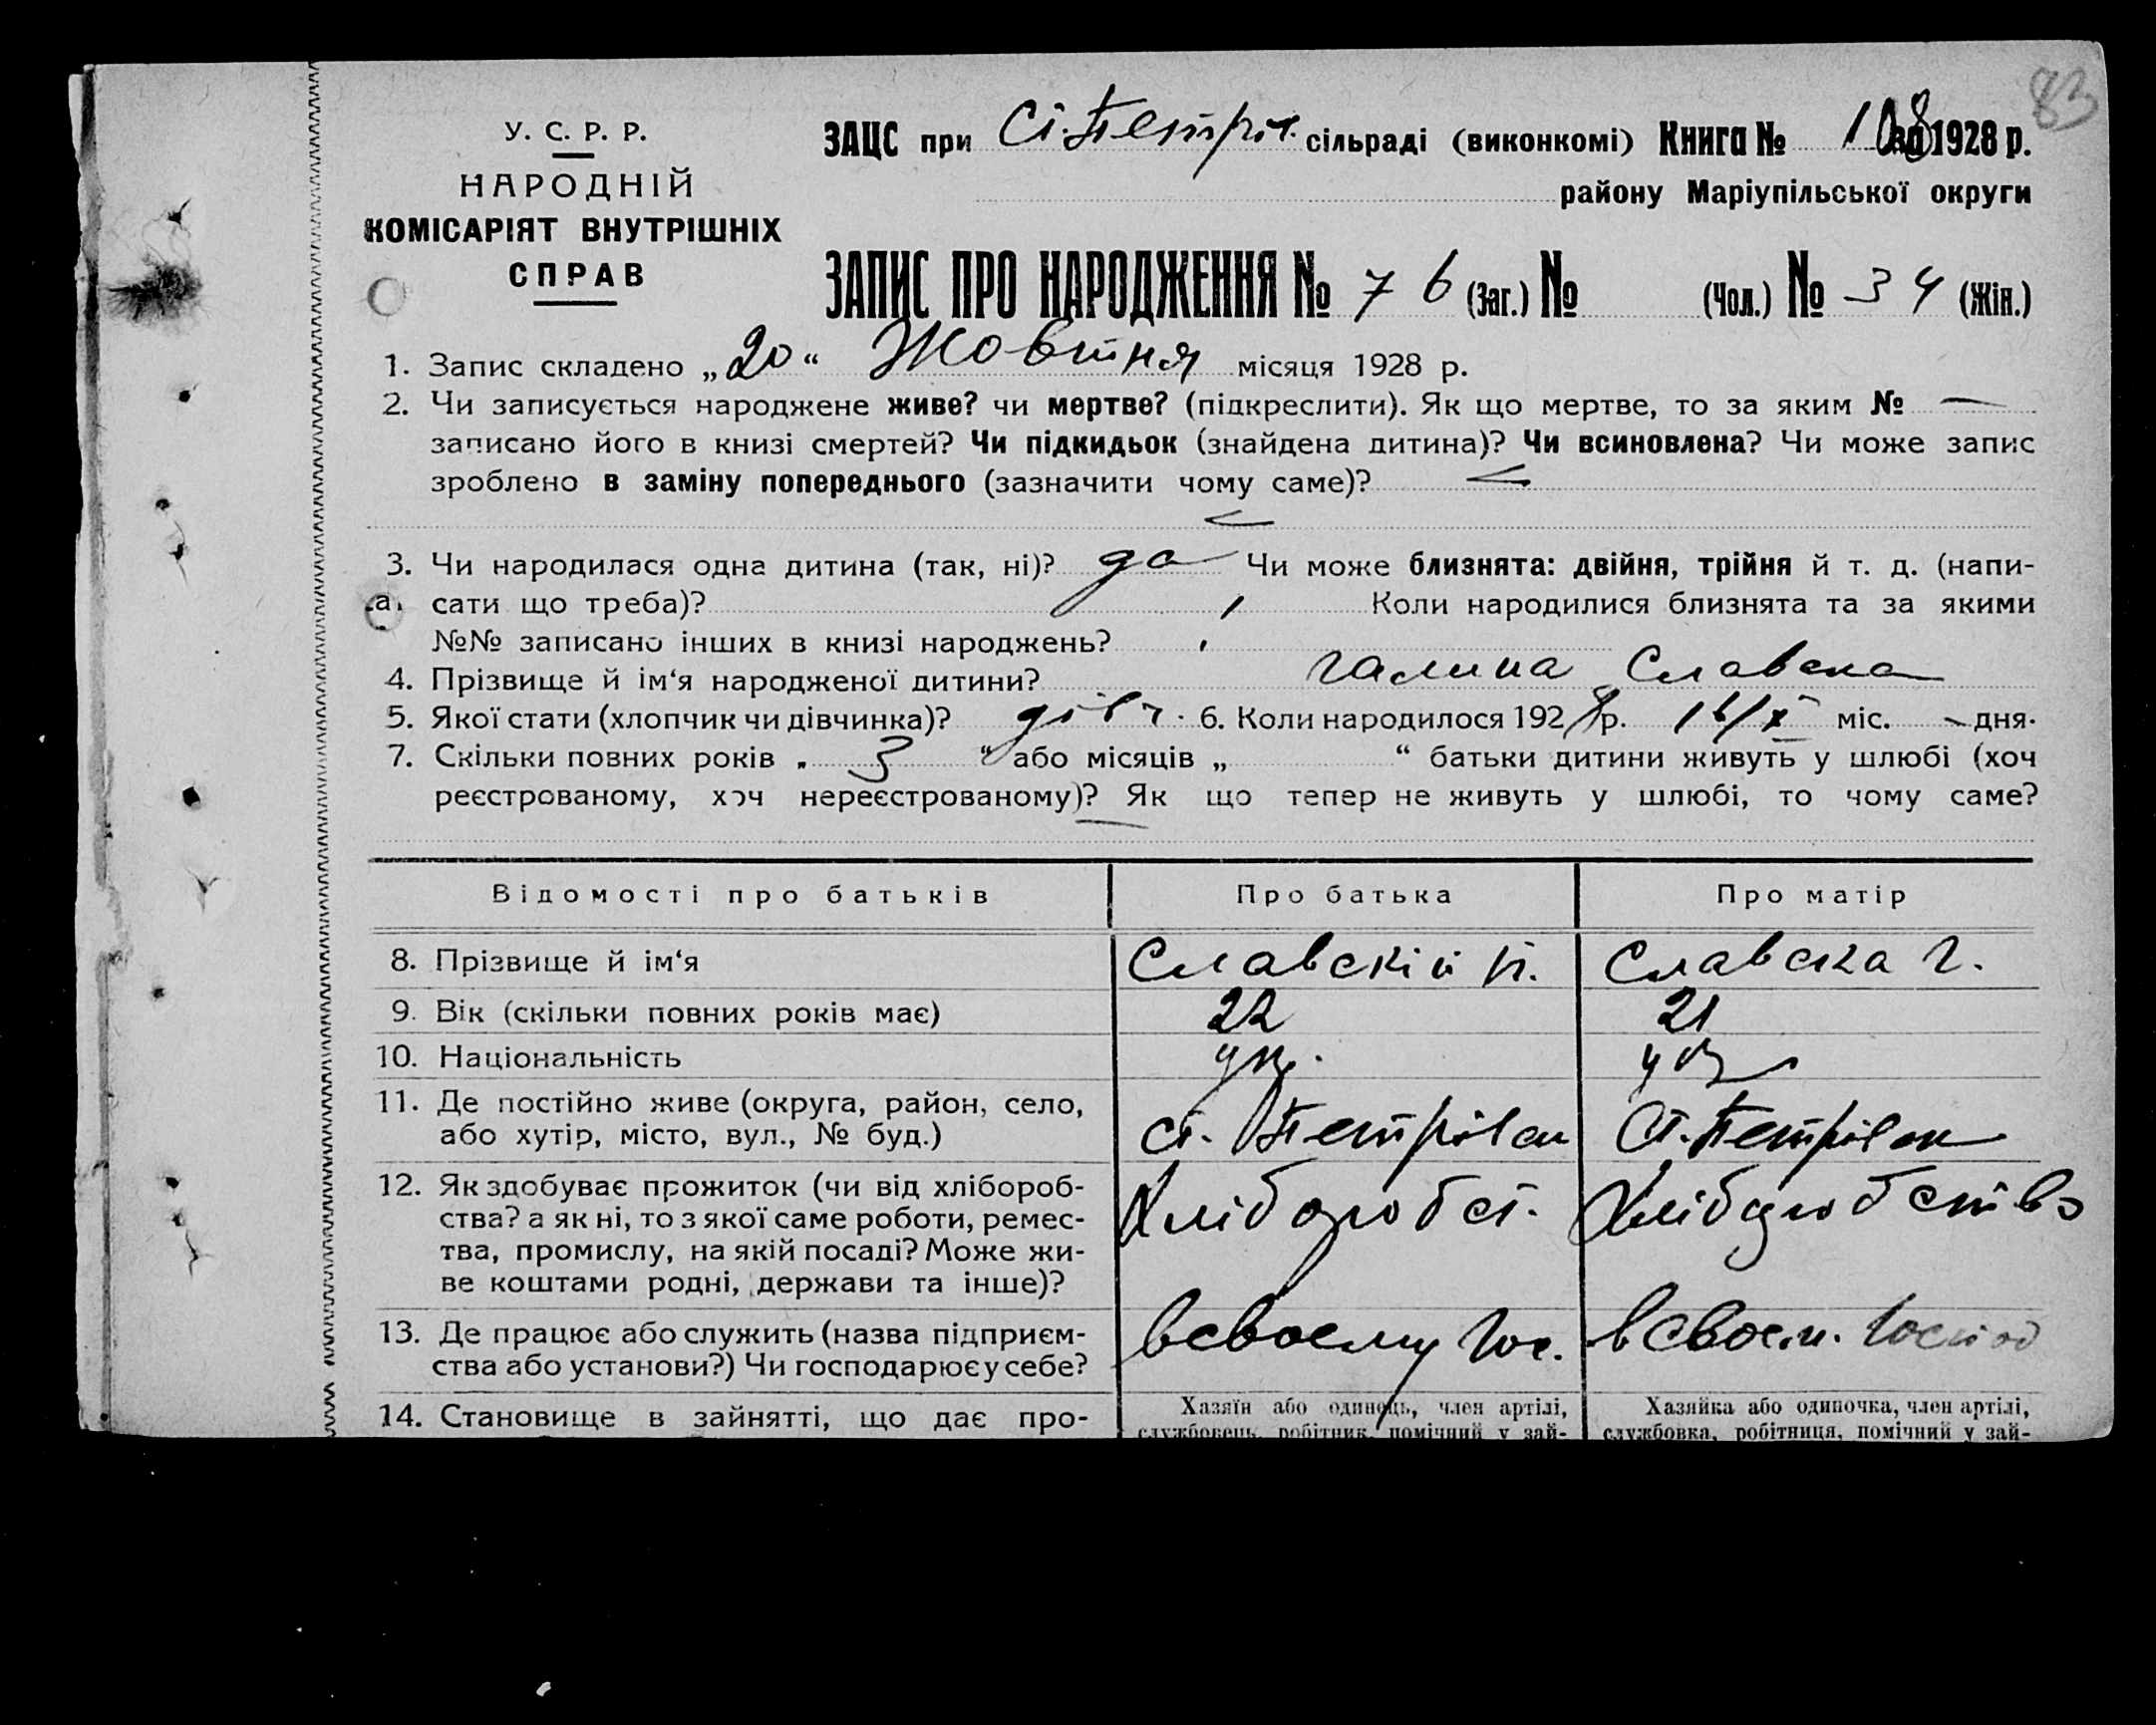 83
У. С. Р. Р.
НАРОДНІЙ
КОМІСАРІЯТ ВНУТРІШНІХ
СПРАВ
ЗАЦС при Ст. Петрів. сільраді (виконкомі) Книга № за 1928 р.
району Маріупільської округи
ЗАПИС ПРО НАРОДЖЕННЯ № 76 (Заг.) № (Чол.) № 34 (Жін.)
1. Запис складено „20“ Жовтня місяця 1928 р.
2. Чи записується народжене живе? чи мертве? (підкреслити). Як що мертве, то за яким № —
записано його в книзі смертей? Чи підкидьок (знайдена дитина)? Чи всиновлена? Чи може запис
зроблено в заміну попереднього (зазначити чому саме)?
3. Чи народилася одна дитина (так, ні)? да Чи може близнята: двійня, трійня й т. д. (напи-
сати що треба)? Коли народилися близнята та за якими
№№ записано інших в книзі народжень?
4. Прізвище й ім‘я народженої дитини? Галина Славска
5. Якої стати (хлопчик чи дівчинка)? дівч. 6. Коли народилось 1928 р. 16/X міс. дня.
7. Скільки повних років „ 3 “ або місяців „ “ батьки дитини живуть у шлюбі (хоч
реєстрованому, хоч нереєстрованому)? Як що тепер не живуть у шлюбі, то чому саме?
Відомості про батьків Про батька Про матір
8. Прізвище й ім‘я Славскій П. Славска Г.
9. Вік (скільки повних років має) 22 21
10. Національність укр. укр
11. Де постійно живе (округа, район, село,
або хутір, місто, вул., № буд.) ст. Петрівки Ст. Петрівки
12. Як здобуває прожиток (чи від хлібороб-
ства? а як ні, то з якої саме роботи, ремес-
тва, промислу, на якій посаді? Може жи-
ве коштами родні, держави та інше)? Хліборобст. Хліборобство
13. Де працює або служить (назва підприєм-
ства або установи?) Чи господарює у себе? всвоему гос. всвоем. господ
14. Становище в зайнятті, що дає про-
Хазяїн або одинець, член артілі,
службовець, робітник, помічний у зай-
Хазяйка або одиночка, член артілі,
службовка, робітниця, помічний у зай-